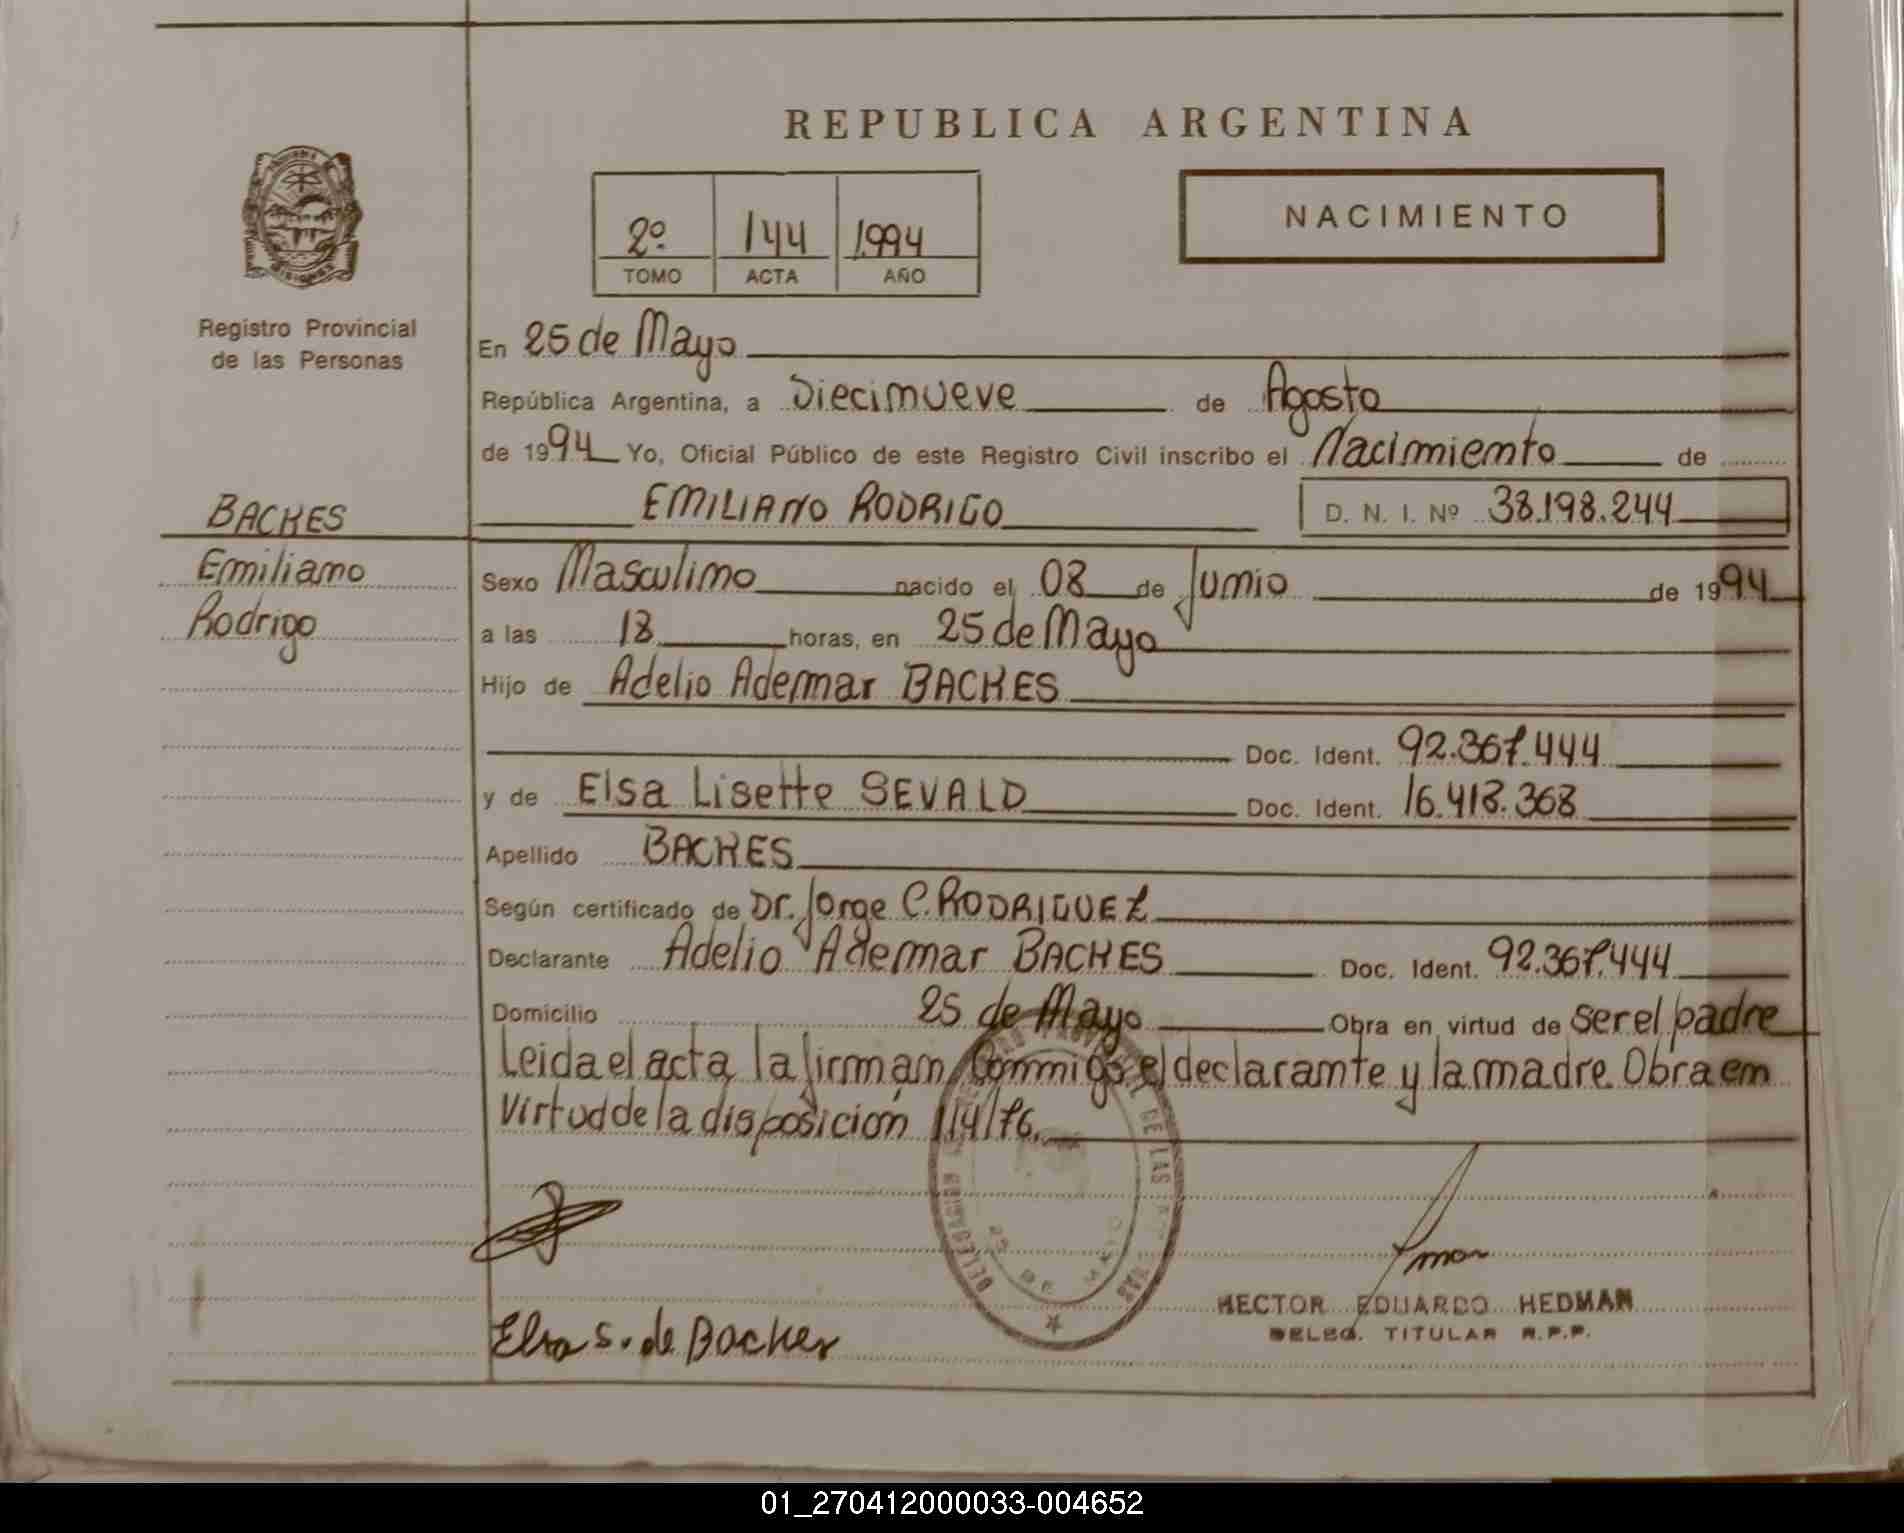 REPUBLICA ARGENTINA
NACIMIENTO
2º 144 1.994
TOMO ACTA AÑO
Registro Provincial
de las Personas
En 25 de Mayo
República Argentina, a Diecinueve de Agosto
de 1994 Yo, Oficial Público de este Registro Civil inscribo el Nacimiento de
BACKES
EMILIANO RODRIGO D. N. I. Nº 38.198.244
Emiliano
Sexo Masculino nacido el 08 de Junio de 1994
Rodrigo
a las 18 horas, en 25 de Mayo
Hijo de Adelio Ademar BACKES
Doc. Ident. 92.367.444
y de Elsa Lisette SEVALD Doc. Ident. 16.418.368
Apellido BACKES
Según certificado de Dr. Jorge C. RODRIGUEZ
Declarante Adelio Ademar BACKES Doc. Ident. 92.367.444
Domicilio 25 de Mayo Obra en virtud de ser el padre
Leida el acta, la firman Conmigo el declarante y la madre. Obra en
Virtud de la disposición 114/76.
DELEGACION DE LAS
25 DE MAYO
HECTOR EDUARDO HEDMAN
DELEG. TITULAR R.P.P.
Elsa S. de Backes
01_270412000033-004652